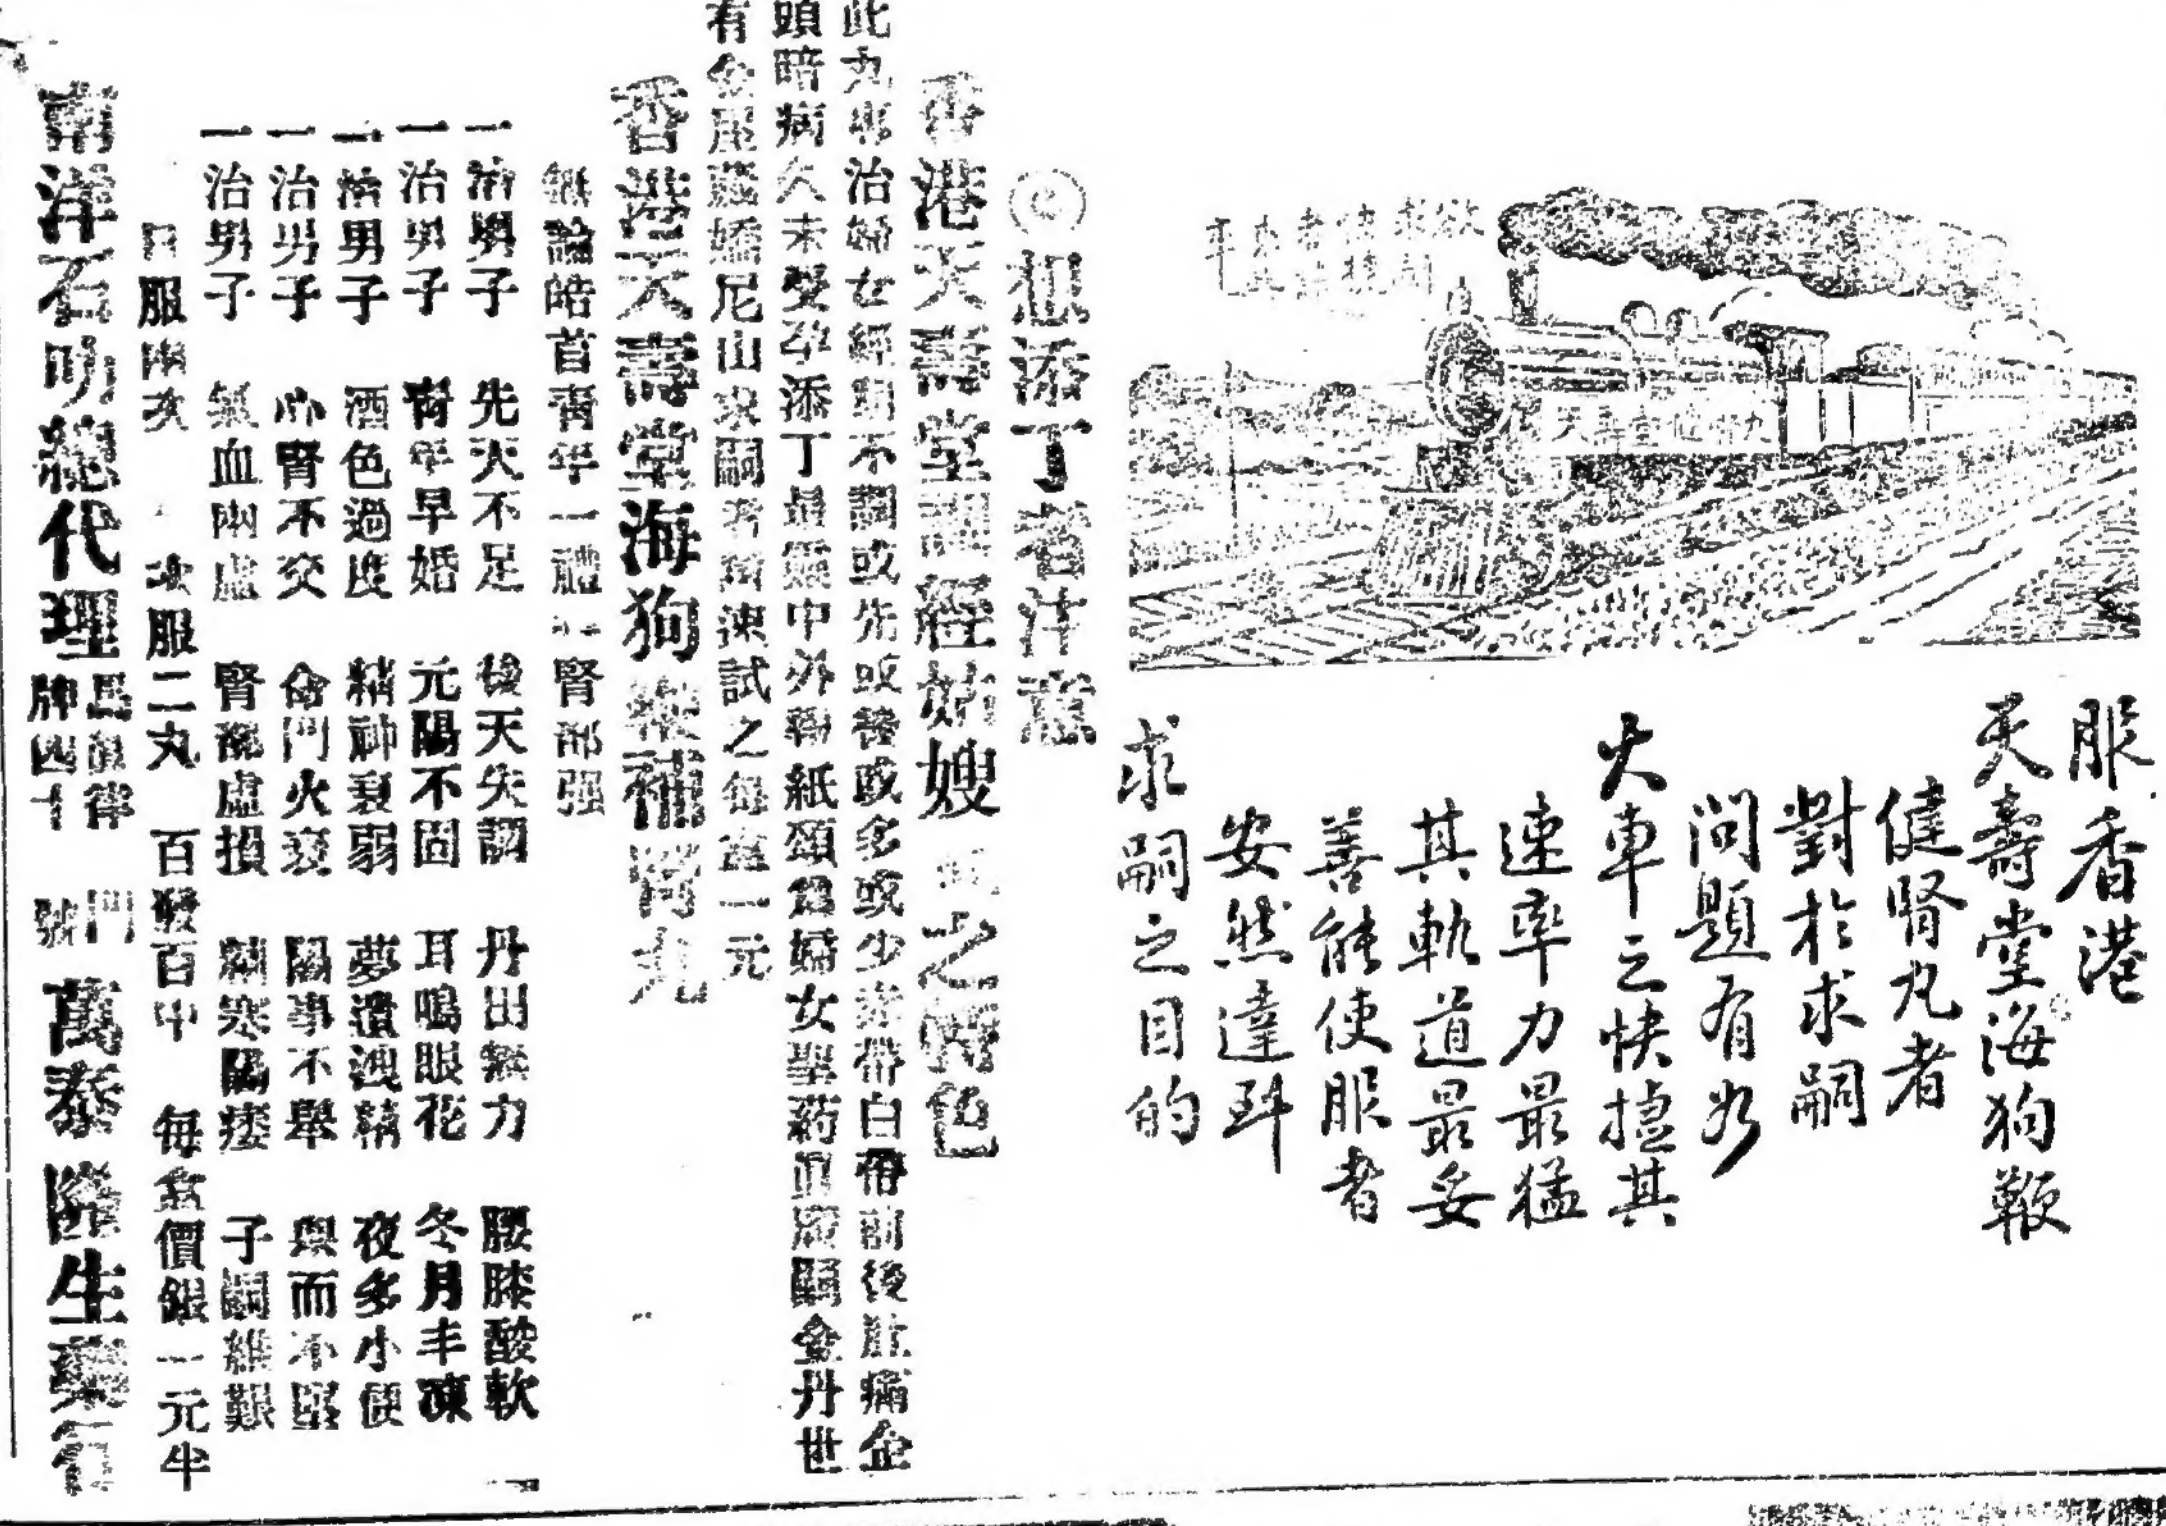 服香港
天壽堂海狗鞭
健腎丸者
對於求嗣
問題有如
火車之快捷其
速率力最猛
其軌道最妥
善能使服者
安然達到
求嗣之目的
想添丁者注意
香港天壽堂調經姑嫂 之特色
此丸專治婦女經期不調或先或後或多或少赤帶白帶前後肚痛企
頭暗病久未受孕添丁最靈中外報紙頌為婦女聖药 金丹世
有 尼山求嗣者 速試之每盒一元
香港天壽堂海狗鞭補腎丸
無論皓首青年一體 腎部强
一治男子 先天不足 後天失調 丹田無力 腰膝酸軟
一治男子 青年早婚 元陽不固 耳鳴眼花 冬月手凍
一治男子 酒色過度 精神衰弱 夢遺洩精 夜多小便
一治男子 心腎不交 命門火衰 陽事不舉 舉而不堅
一治男子 氣血兩虛 腎 虛損 精寒陽痿 子嗣維艱
日服兩次 次服二丸 百發百中 每盒價銀一元半
南洋石叻總代理 馬 律門牌四十 號 萬泰隆生藥行